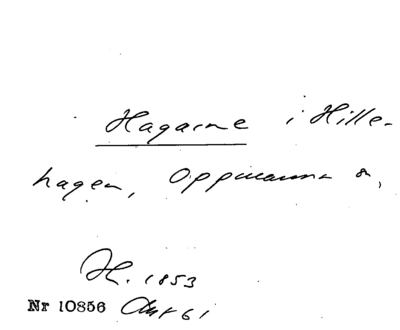 Hagarne i Hille-
hagen, Oppmanna s,
H. 1853
Nr 10856